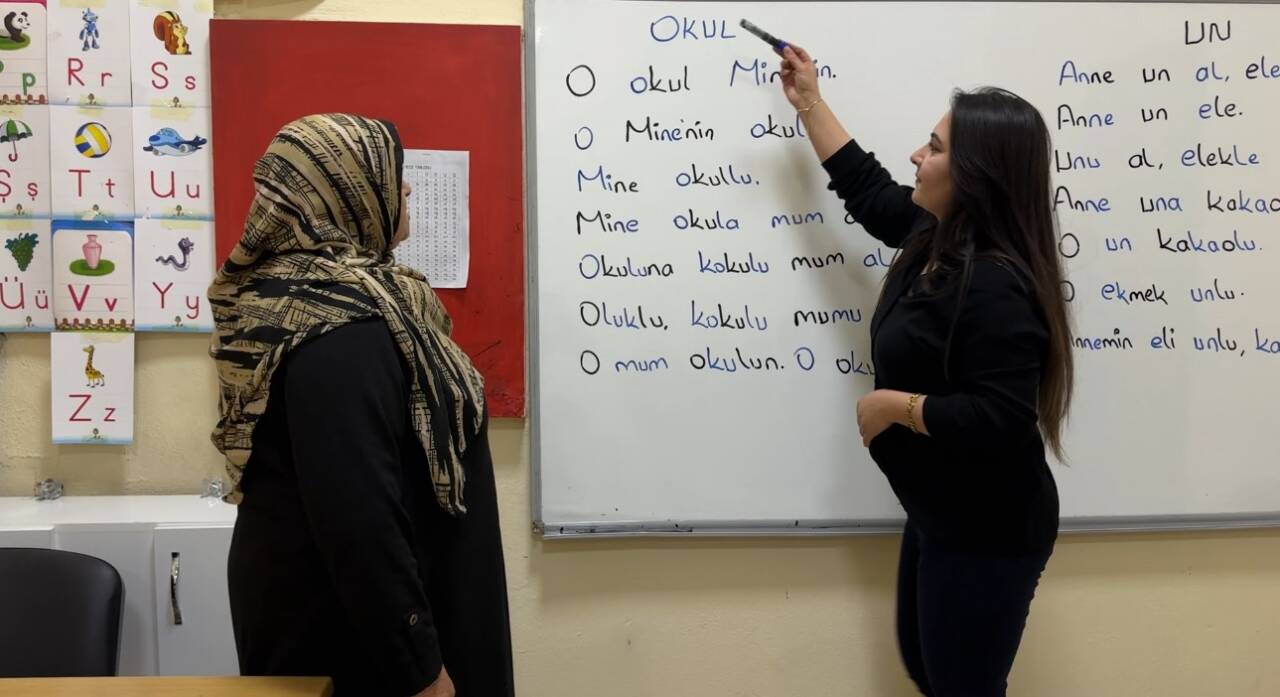 p
R r
S s
Ş ş
T t
U u
Ü ü
V v
Y y
Z z
OKUL
O okul
O Mine'nin okul
Mine okullu.
Mine okula mum
Okuluna kokulu mum
Oluklu, kokulu mumu
O mum okulun. O
UN
Anne un al, ele
Anne un ele.
Unu al, elekle
Anne una
O un kakaolu.
ekmek unlu.
eli unlu,